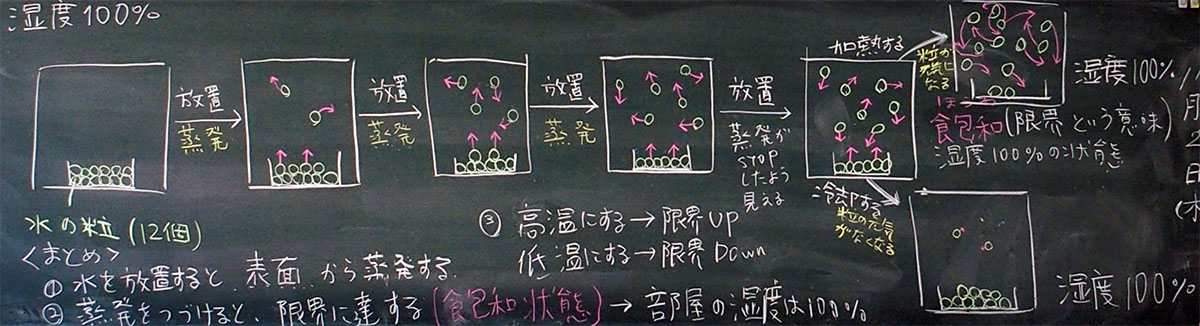 湿度100%
放置
蒸発
放置
蒸発
放置
蒸発
放置
蒸発が
STOP
したよう
見える
加熱する
粒が
元気に
なる
冷却する
粒の元気
がなくなる
湿度100%
ほ
飽和(限界という意味)
湿度100%の状態
湿度100%
水の粒(12個)
<まとめ>
① 水を放置すると 表面 から蒸発する.
② 蒸発をつづけると、限界に達する(飽和状態)→部屋の湿度は100%
③ 高温にする→限界UP
低温にする→限界Down
月
日
(木